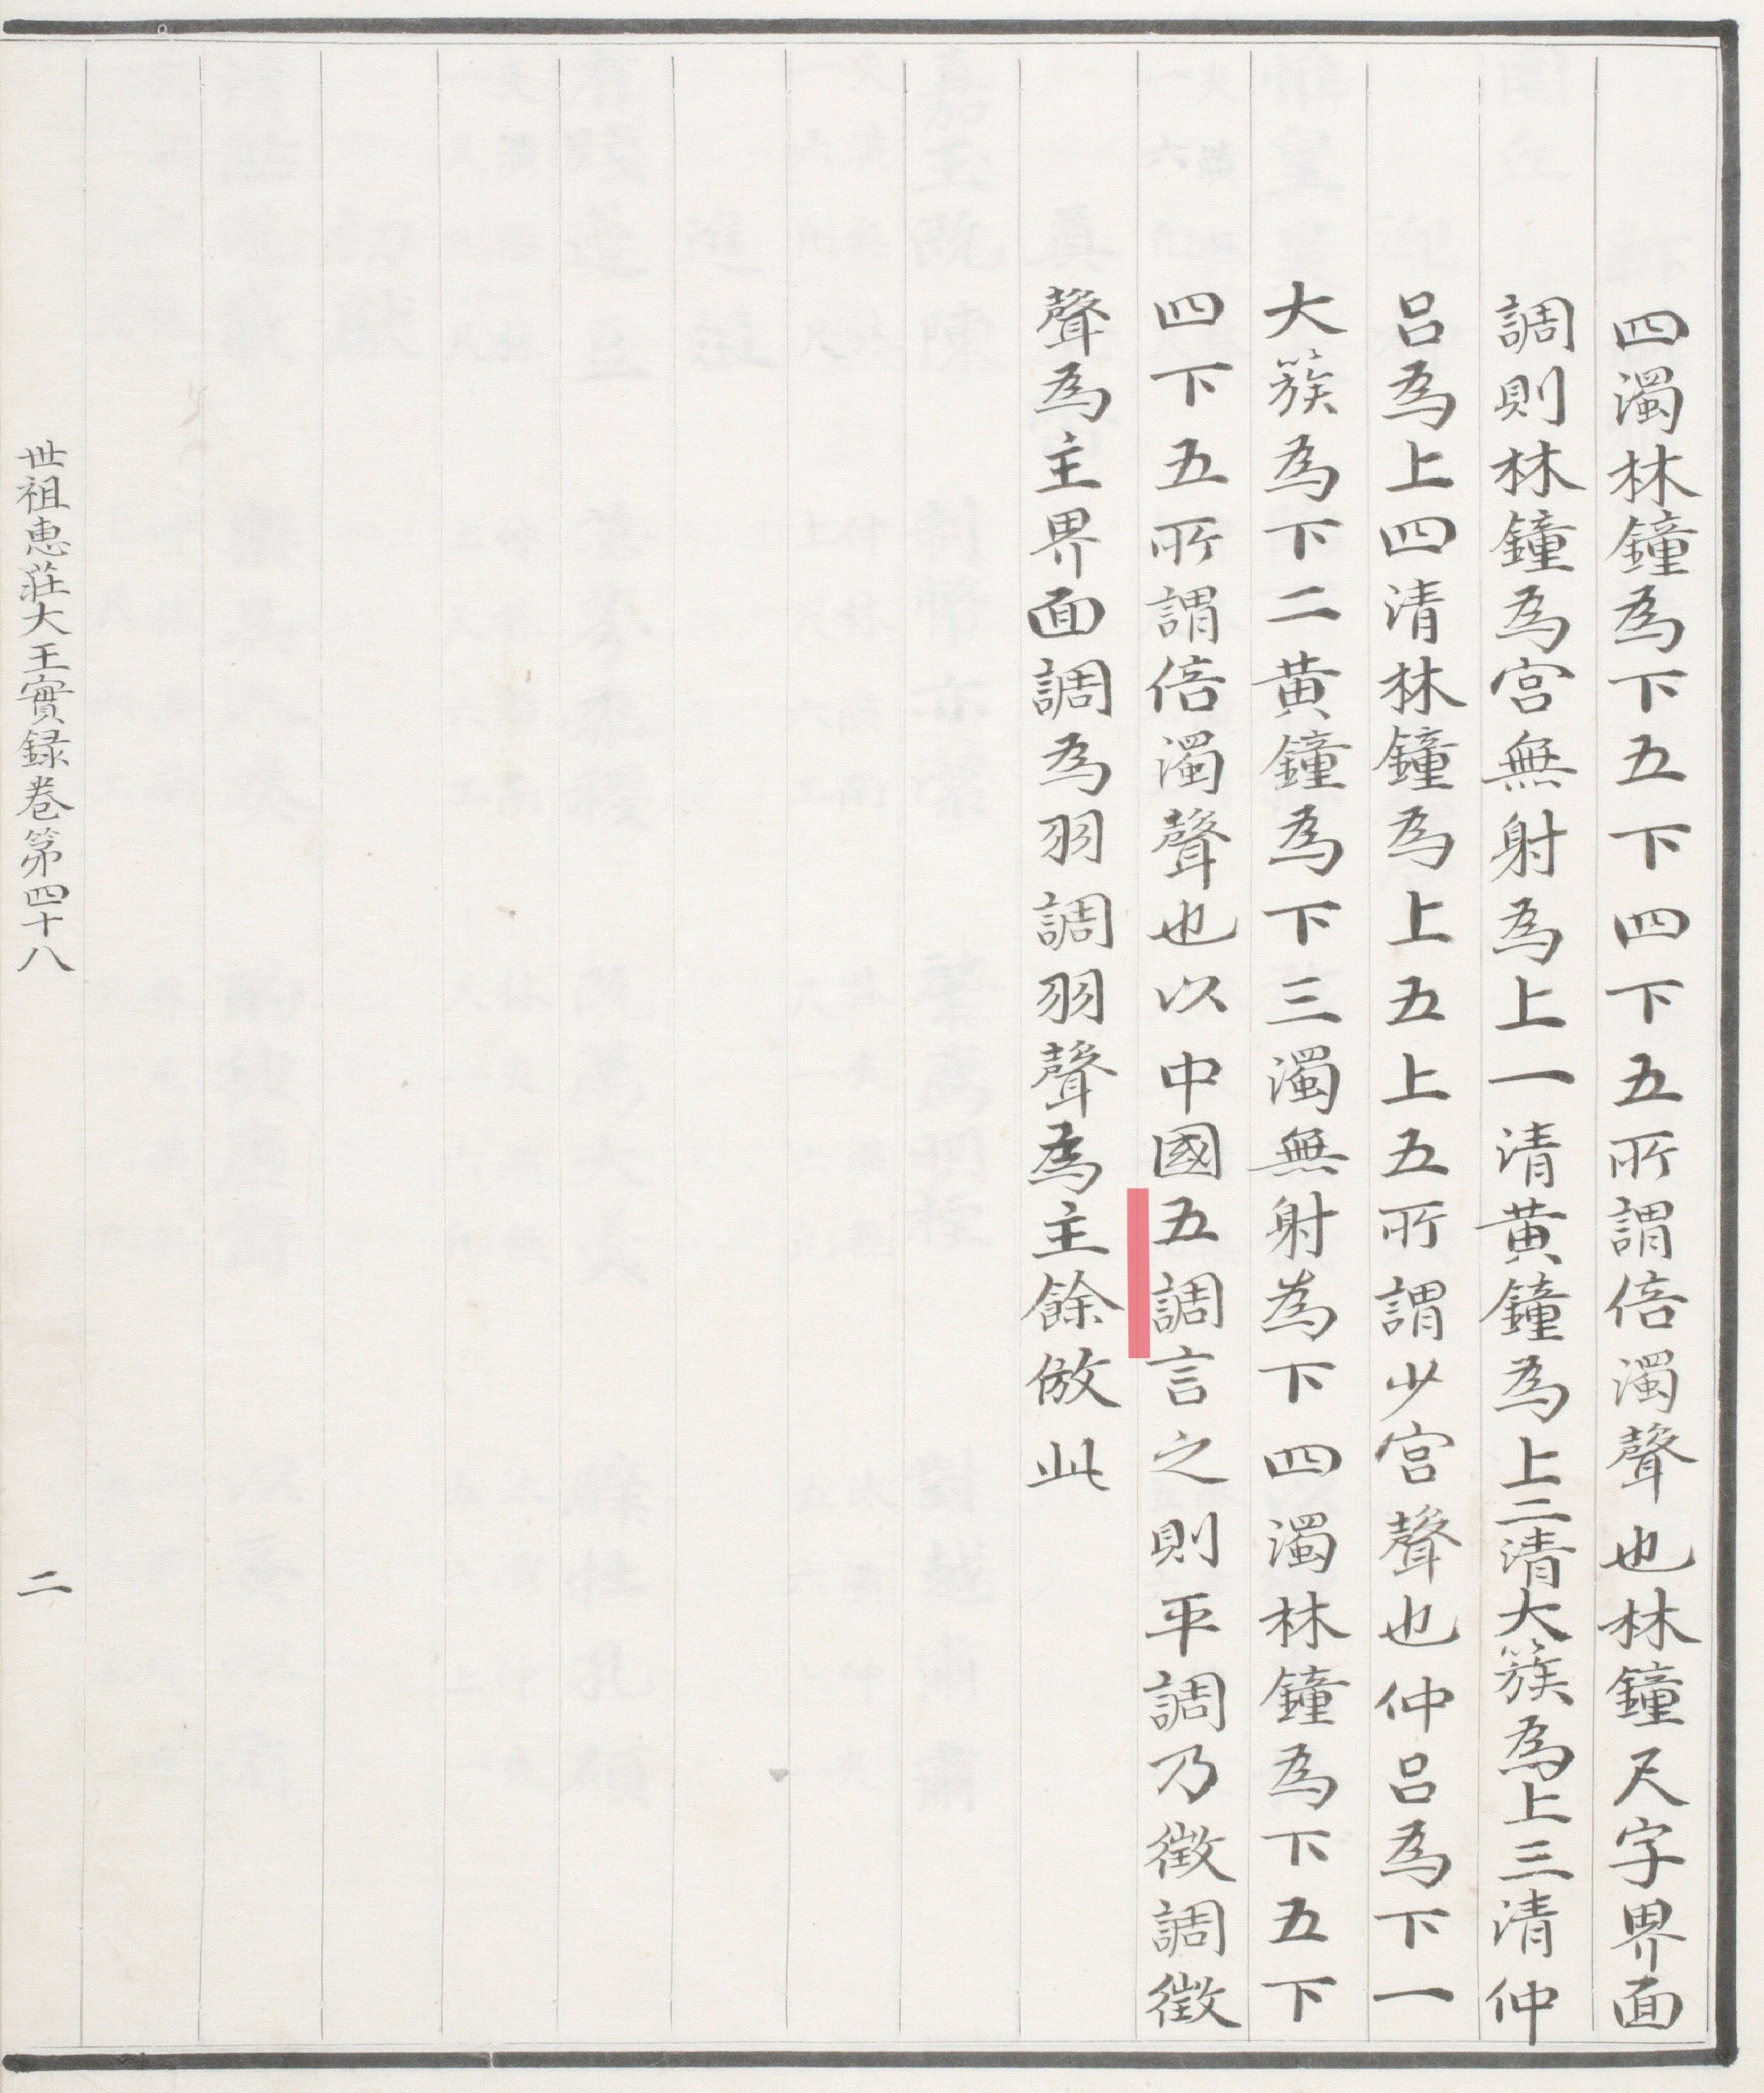 四濁林鐘爲下五下四下五所謂倍濁聲也林鐘尺字界面
調則林鐘爲宮無射爲上一清黃鐘爲上二清大簇爲上三清仲
呂爲上四清林鐘爲上五上五所謂少宮聲也仲呂爲下一
大簇爲下二黃鐘爲下三濁無射為下四濁林鐘爲下五下
四下五所謂倍濁聲也以中國五調言之則平調乃徵調徵
聲爲主界面調爲羽調羽聲爲主餘倣此
世祖惠莊大王實録卷第四十八
二